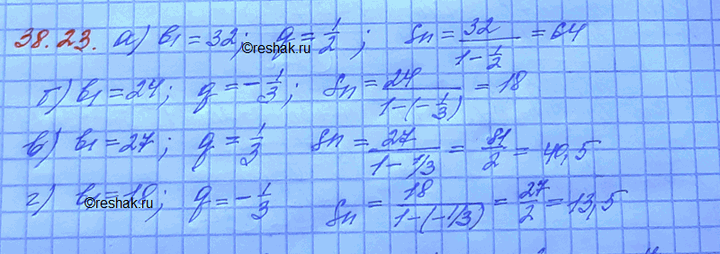 38.23. а) b₁ = 32; q = 1/2; Sn = 32/(1 - 1/2) = 64
©reshak.ru
б) b₁ = 24; q = -1/3; Sn = 24/(1-(-1/3)) = 18
в) b₁ = 27; q = 1/3 Sn = 27/(1 - 1/3) = 81/2 = 40,5
г) b₁ = 18; q = -1/3 Sn = 18/(1-(-1/3)) = 27/2 = 13,5
©reshak.ru ©reshak.ru